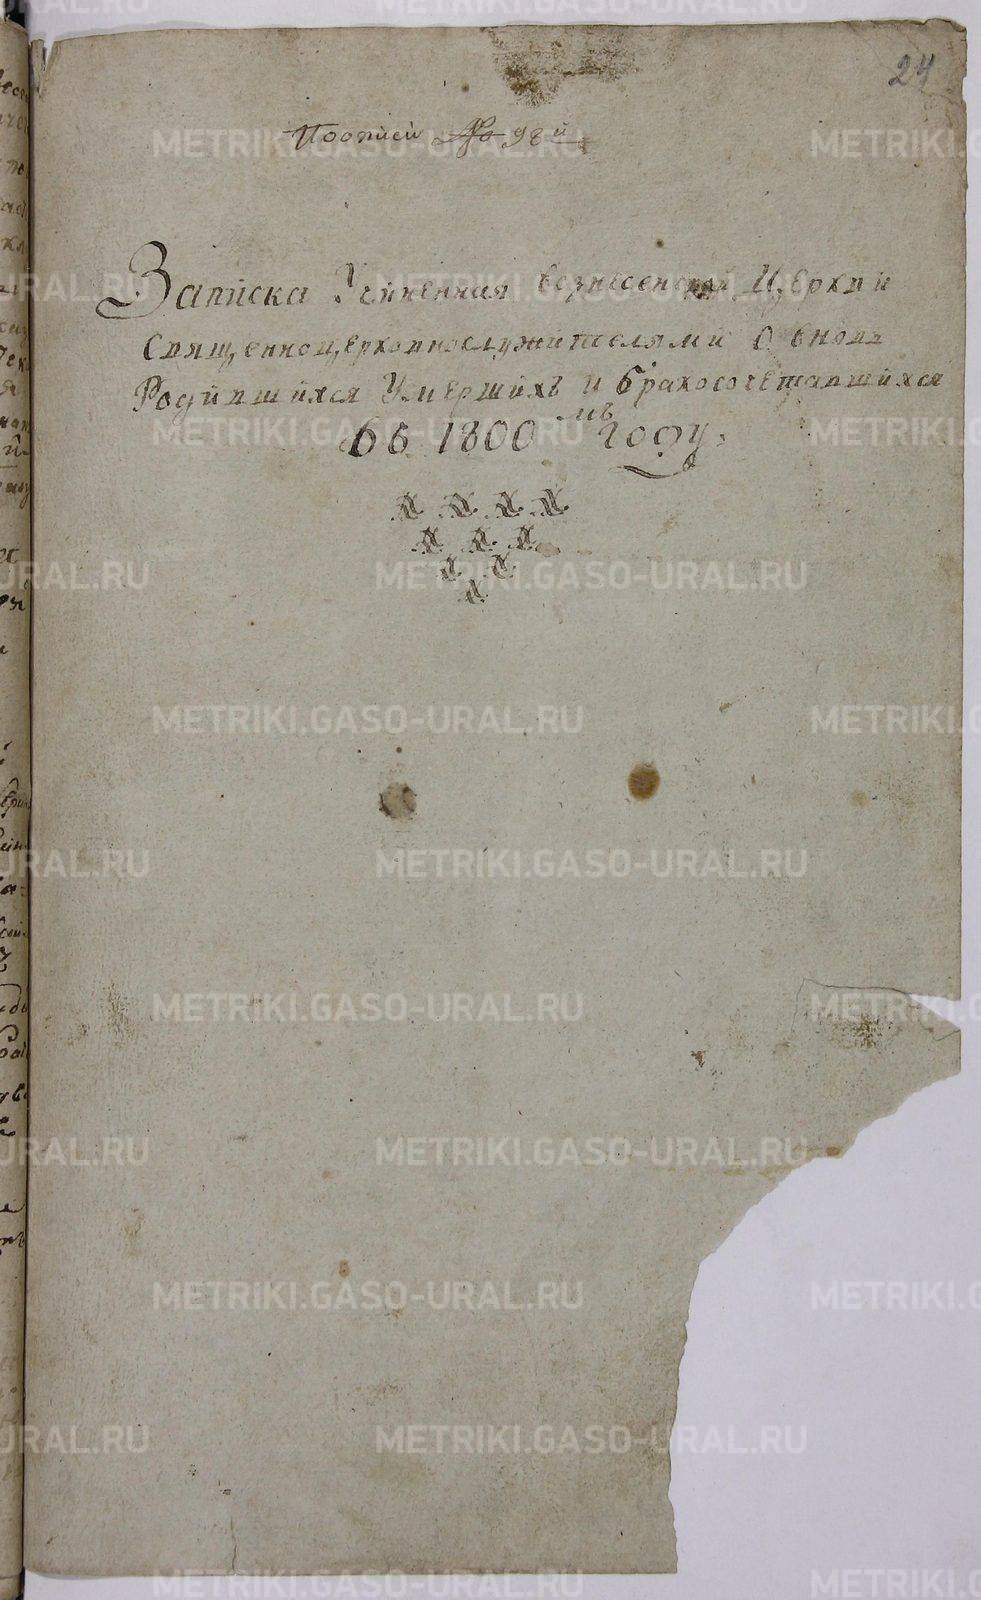 24
Поописи № 98й
Записка Учиненная вознесенской Церкви
Священноцерковнослужителями О вновь
Родившихся Умерших и бракосочетавшихся
въ 1800мъ году.
METRIKI.GASO-URAL.RU